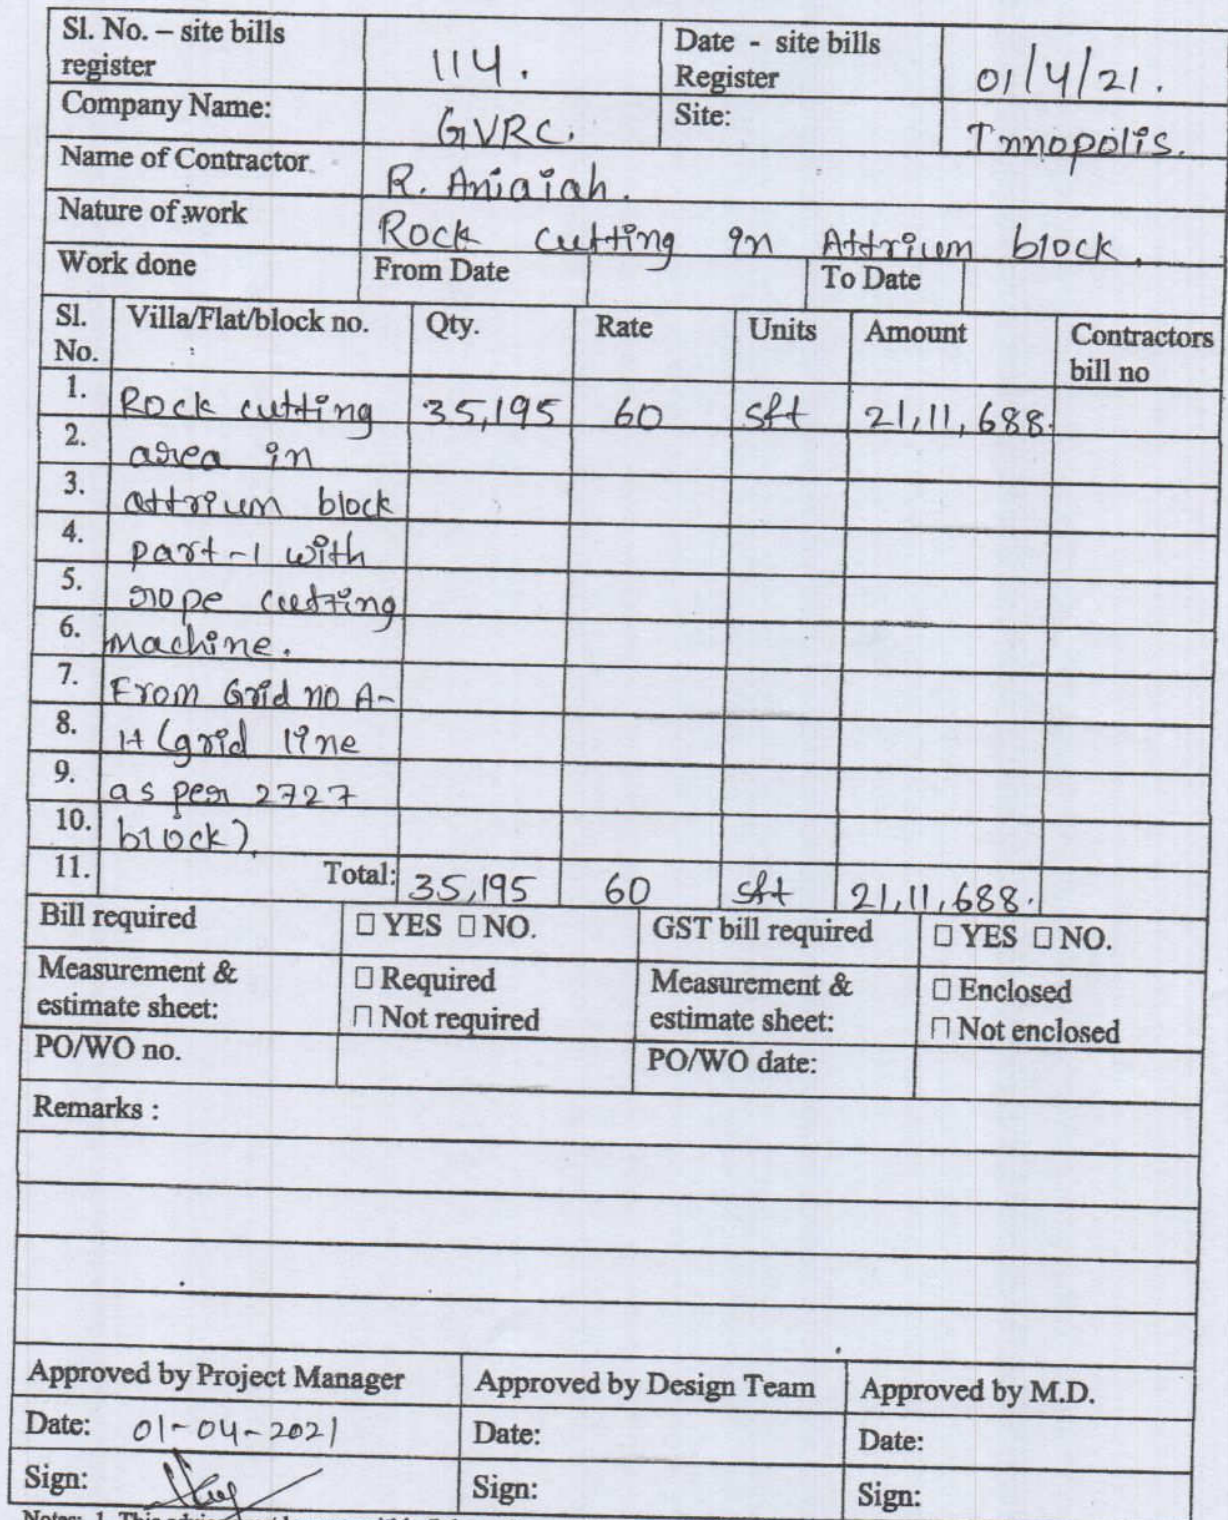 Sl. No. – site bills register 114. Date - site bills Register 01/4/21.
Company Name: GVRC. Site: Innopolis.
Name of Contractor R. Aniaiah.
Nature of work Rock cutting in Attrium block.
Work done From Date To Date
Sl. No. Villa/Flat/block no. Qty. Rate Units Amount Contractors bill no
1. Rock cutting 35,195 60 sft 21,11,688.
2. area in
3. attrium block
4. part-1 with
5. rope cutting
6. machine.
7. From Grid no A-
8. H (grid line
9. as per 2727
10. block).
11. Total: 35,195 60 sft 21,11,688.
Bill required □ YES □ NO. GST bill required □ YES □ NO.
Measurement & estimate sheet: □ Required □ Not required Measurement & estimate sheet: □ Enclosed □ Not enclosed
PO/WO no. PO/WO date:
Remarks :
Approved by Project Manager Approved by Design Team Approved by M.D.
Date: 01-04-2021 Date: Date:
Sign: Sign: Sign:
Notes: 1. This